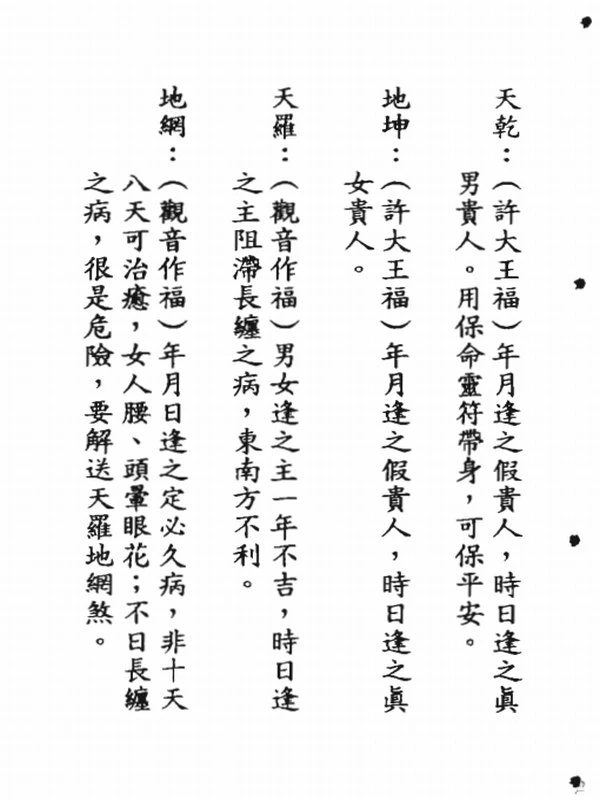 天乾：（許大王福）年月逢之假貴人，時日逢之眞
男貴人。用保命靈符帶身，可保平安。
地坤：（許大王福）年月逢之假貴人，時日逢之眞
女貴人。
天羅：（觀音作福）男女逢之主一年不吉，時日逢
之主阻滯長纏之病，東南方不利。
地網：（觀音作福）年月日逢之定必久病，非十天
八天可治癒，女人腰、頭暈眼花；不日長纏
之病，很是危險，要解送天羅地網煞。